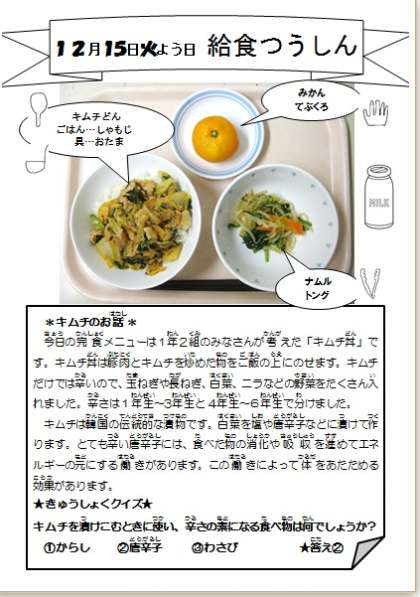 12月15日火よう日 給食つうしん
みかん
てぶくろ
キムチどん
ごはん…しゃもじ
具…おたま
MILK
ナムル
トング
＊キムチのお話＊
今日の完食メニューは１年２組のみなさんが考えた「キムチ丼」で
す。キムチ丼は豚肉とキムチを炒めた物をご飯の上にのせます。キムチ
だけでは辛いので、玉ねぎや長ねぎ、白菜、ニラなどの野菜をたくさん入
れました。辛さは１年生～３年生と４年生～６年生で分けました。
キムチは韓国の伝統的な漬物です。白菜を塩や唐辛子などに漬けて作
ります。とても辛い唐辛子には、食べた物の消化や吸収を進めてエネ
ルギーの元にする働きがあります。この働きによって体をあたためる
効果があります。
★きゅうしょくクイズ★
キムチを漬けこむときに使い、辛さの素になる食べ物は何でしょうか？
①からし ②唐辛子 ③わさび ★答え②